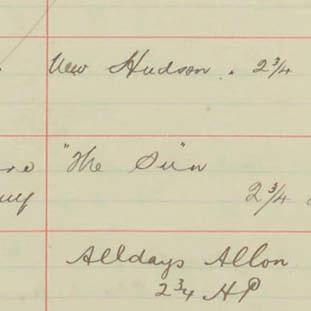 New Hudson. 2¾
"The Sun"
2¾
Alldays Allon
2¾ HP